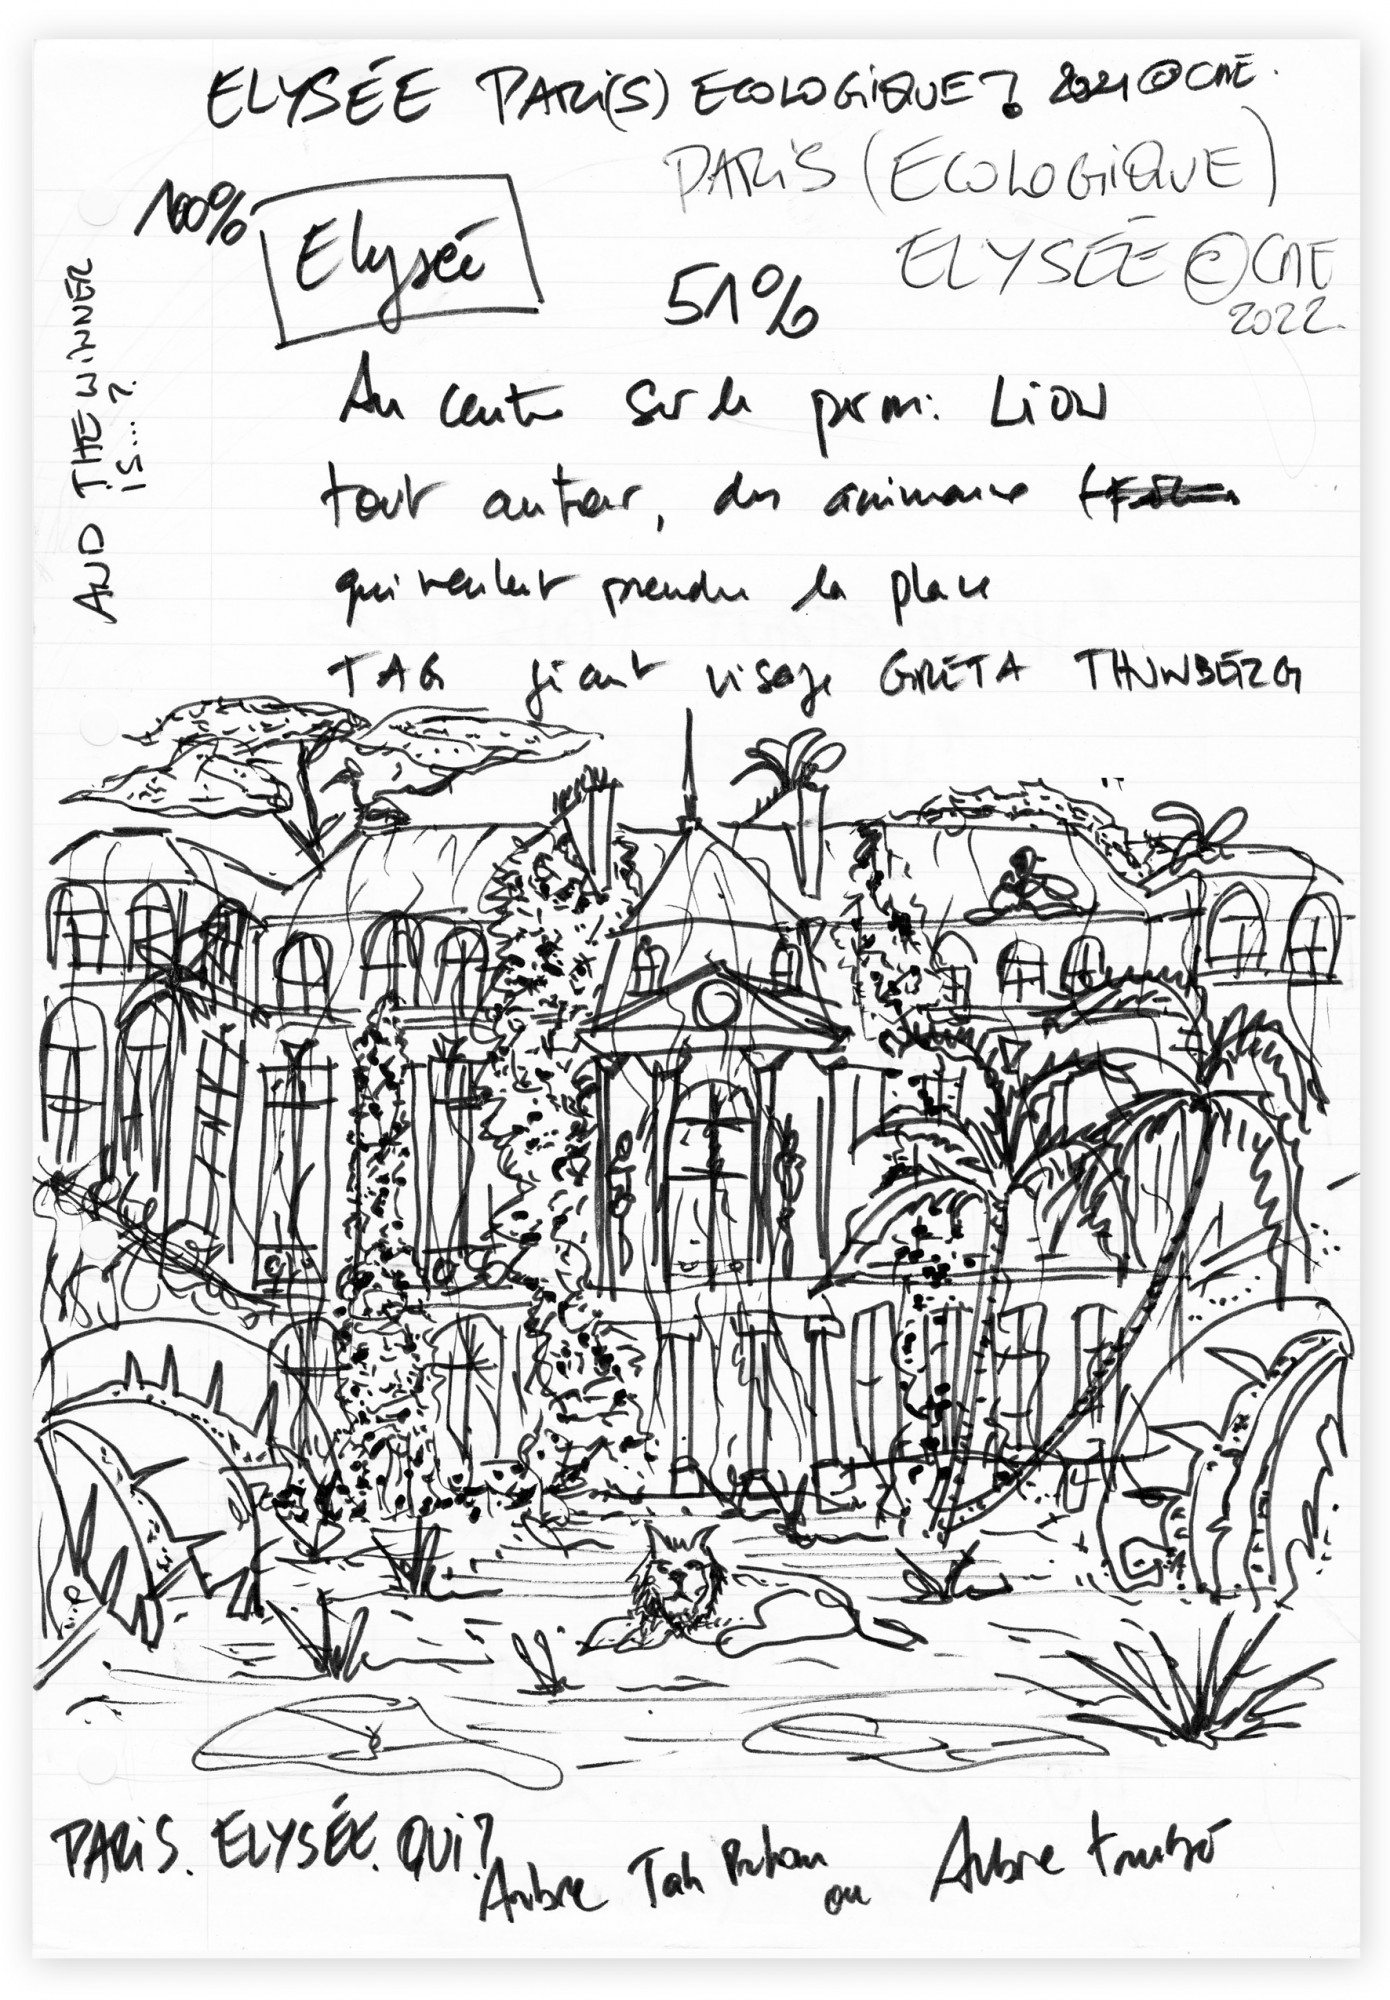 ELYSÉE PARi(S) ECOLOGiQUE? 2021 @ CME.
PARiS (ECOLOGiQUE)
ELYSÉE © CME
2022.
100%
Elysée
51%
AND THE WINNER
IS...?
Au centre sur le perron: LiON
tout autour, des animaux
qui veulent prendre la place
TAG géant visage GRETA THUNBERG
PARiS. ELYSÉE. QUi?
Arbre Tah Prohm
ou Arbre tombé